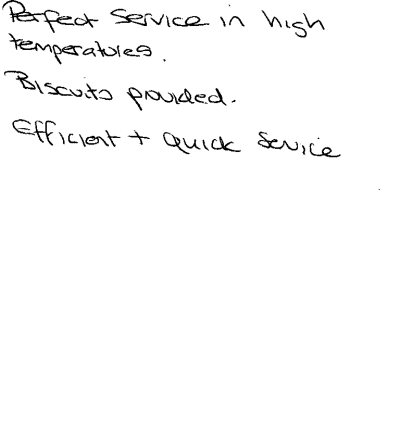 Perfect Service in high
temperatures.
Biscuits provided.
Efficient + Quick Service